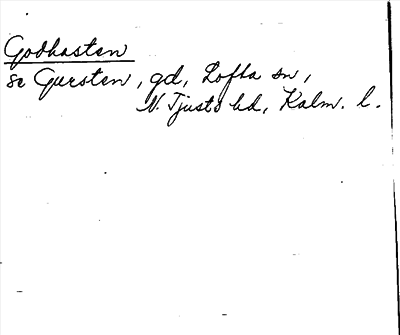 Godhasten
se Gursten, gd, Lofta sn,
N. Tjusts hd, Kalm. l.